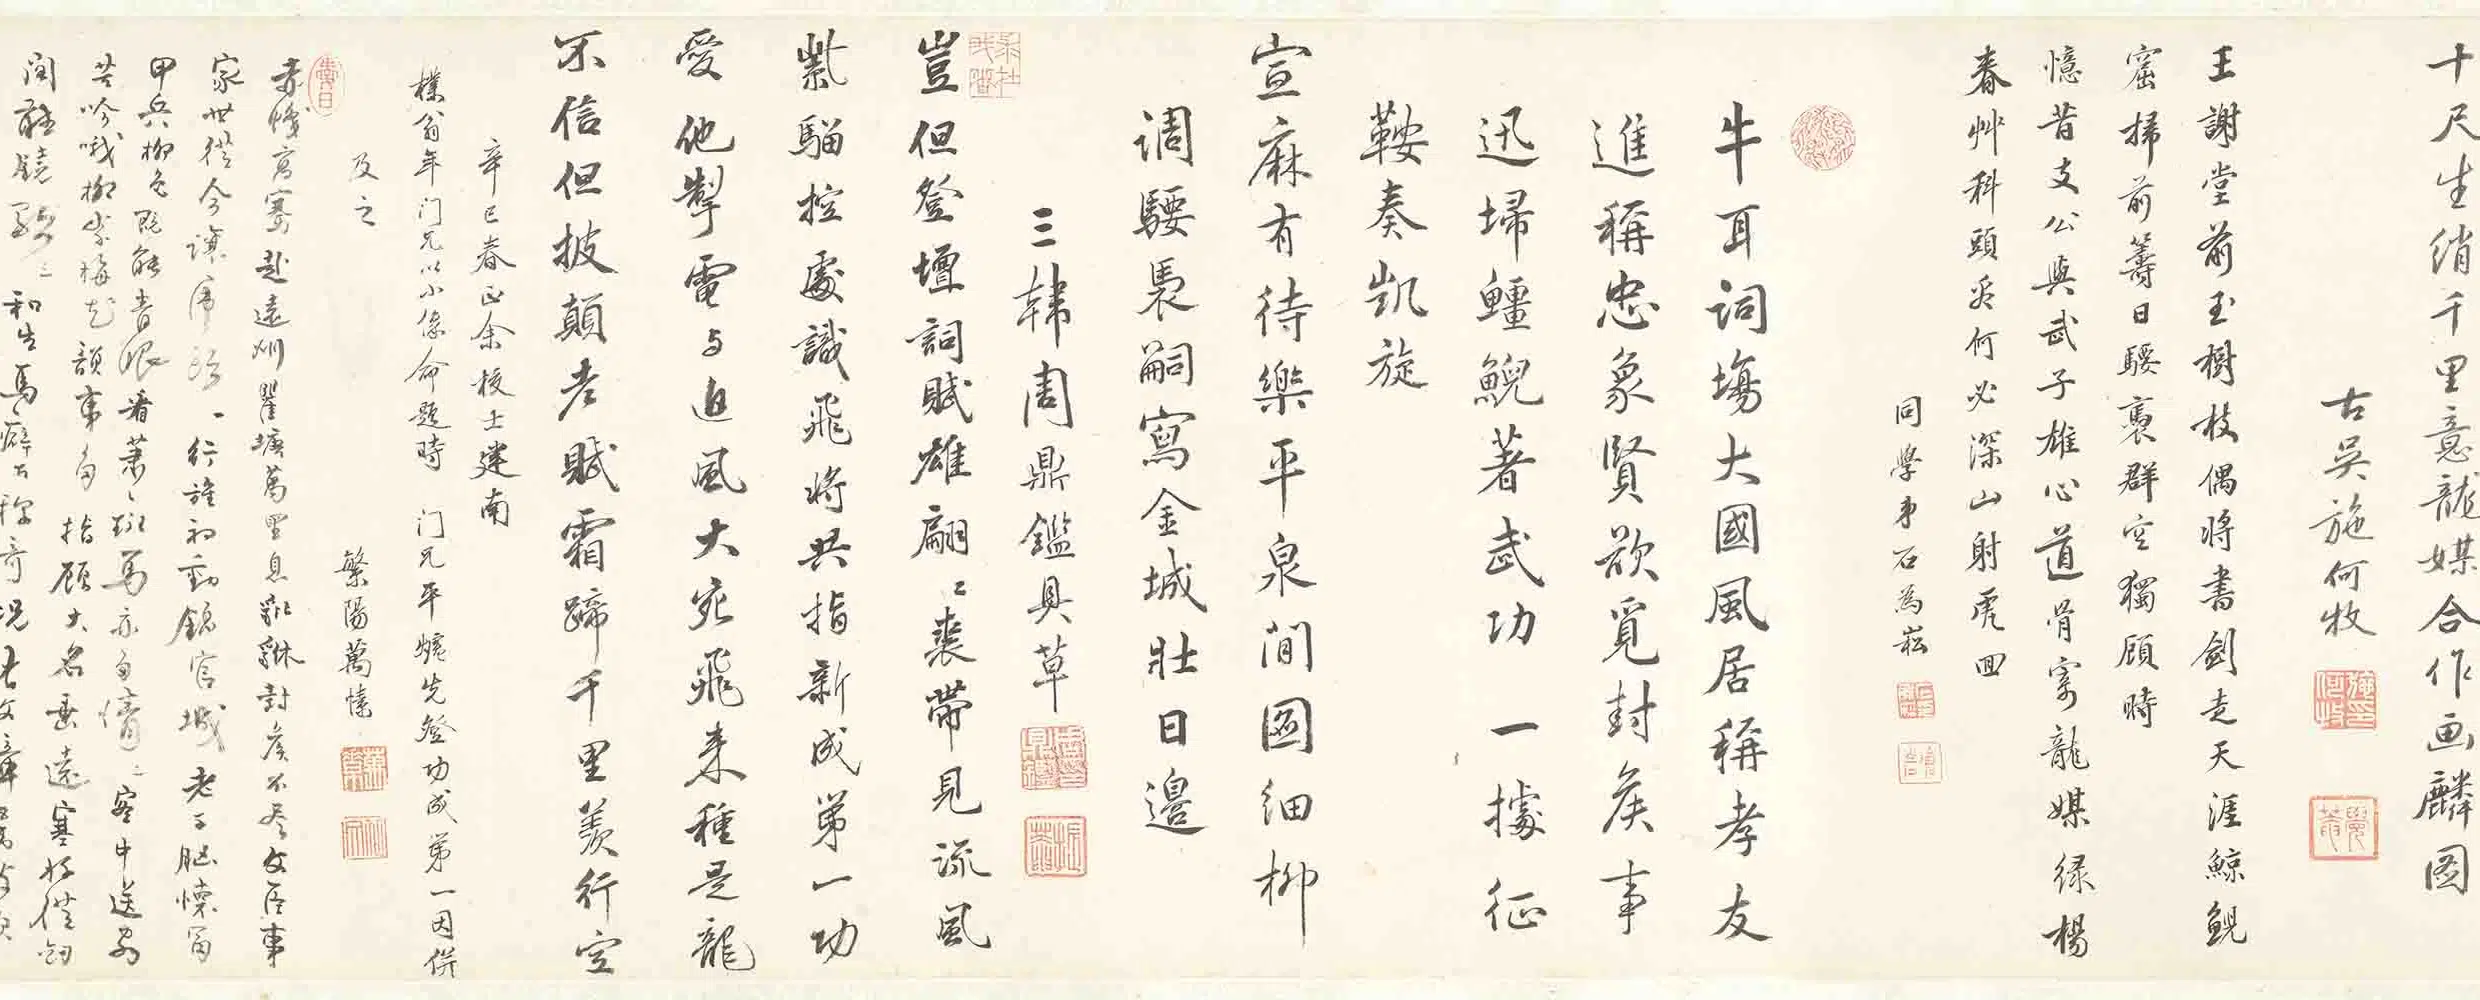 十尺生綃千里意龍媒合作画麟图
古吳施何牧
王謝堂前玉樹枝偶將書劍走天涯鯨鯢
窟掃前籌日騕褭群空獨顧時
憶昔支公與武子雄心道骨寄龍媒緑楊
春艸科頭处何必深山射虎回
同學弟石為崧
牛耳詞場大國風居稱孝友
進稱忠象賢欲覓封矦事
迅埽鱷鯢著武功一據征
鞍奏凯旋
宣麻有待樂平泉閒圖细柳
调騕褭嗣寫金城壮日邊
三韓周鼎鑑具草
豈但登壇詞賦雄翩〻裘帶見流風
紫騮控處識飛将共指新成第一功
愛他掣電与追風大宛飛来種是龍
不信但披顛老賦霜蹄千里羨行空
辛巳春正余校士建南
樸翁年门兄以小像命題時门兄平
先登功成第一因併
及之
繁陽萬愫
赤幘高騫赴遠州瞿塘萬里息貔貅封矦不
文臣事
家世從今讓虎頭一行旌初動錦官城老子胸懷
甲兵柳色
眼看萧〻斑馬亦多情〻客中送
苦吟哦柳
梅花韻事多指顧大名垂遠塞
闻
鏡
和生馬癖
稱奇况
文章